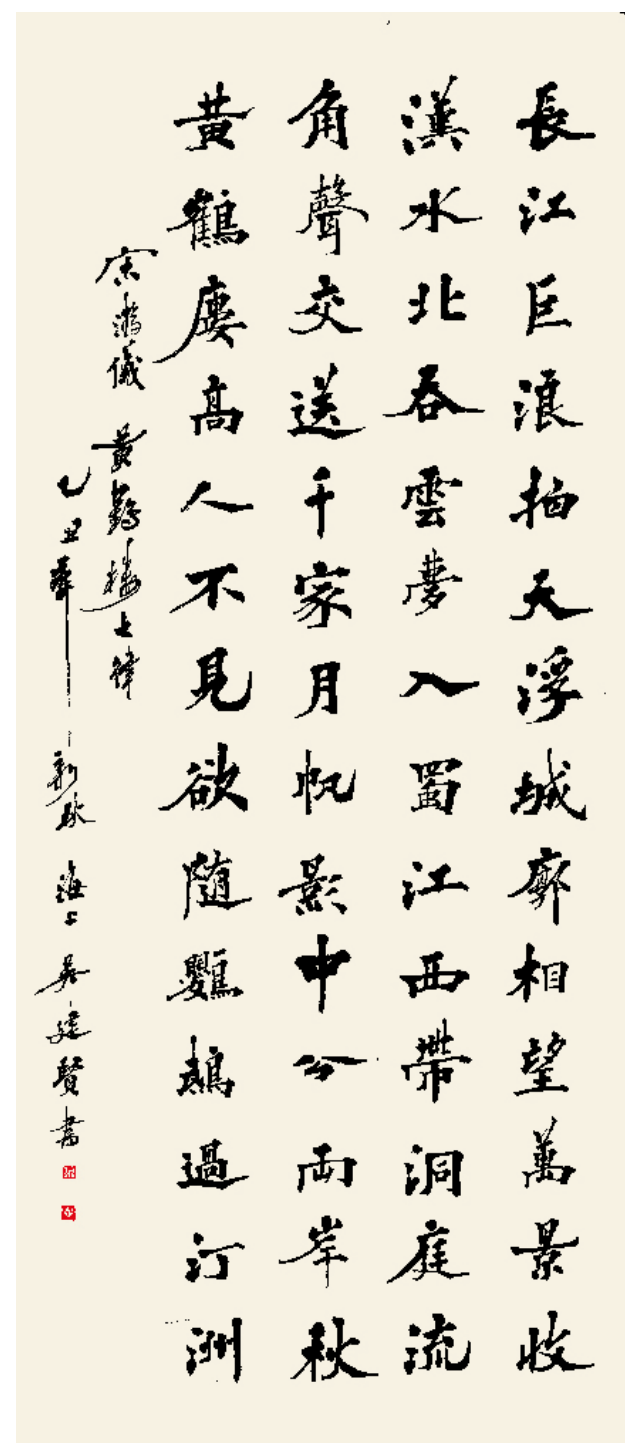 長江巨浪拍天浮城廓相望萬景收
漢水北吞雲夢入蜀江西帶洞庭流
角聲交送千家月帆影中分兩岸秋
黃鶴廔高人不見欲隨鸚鵡過汀洲
宋游儀 黃鶴樓七律
乙丑年新秋 海上 吳建賢書